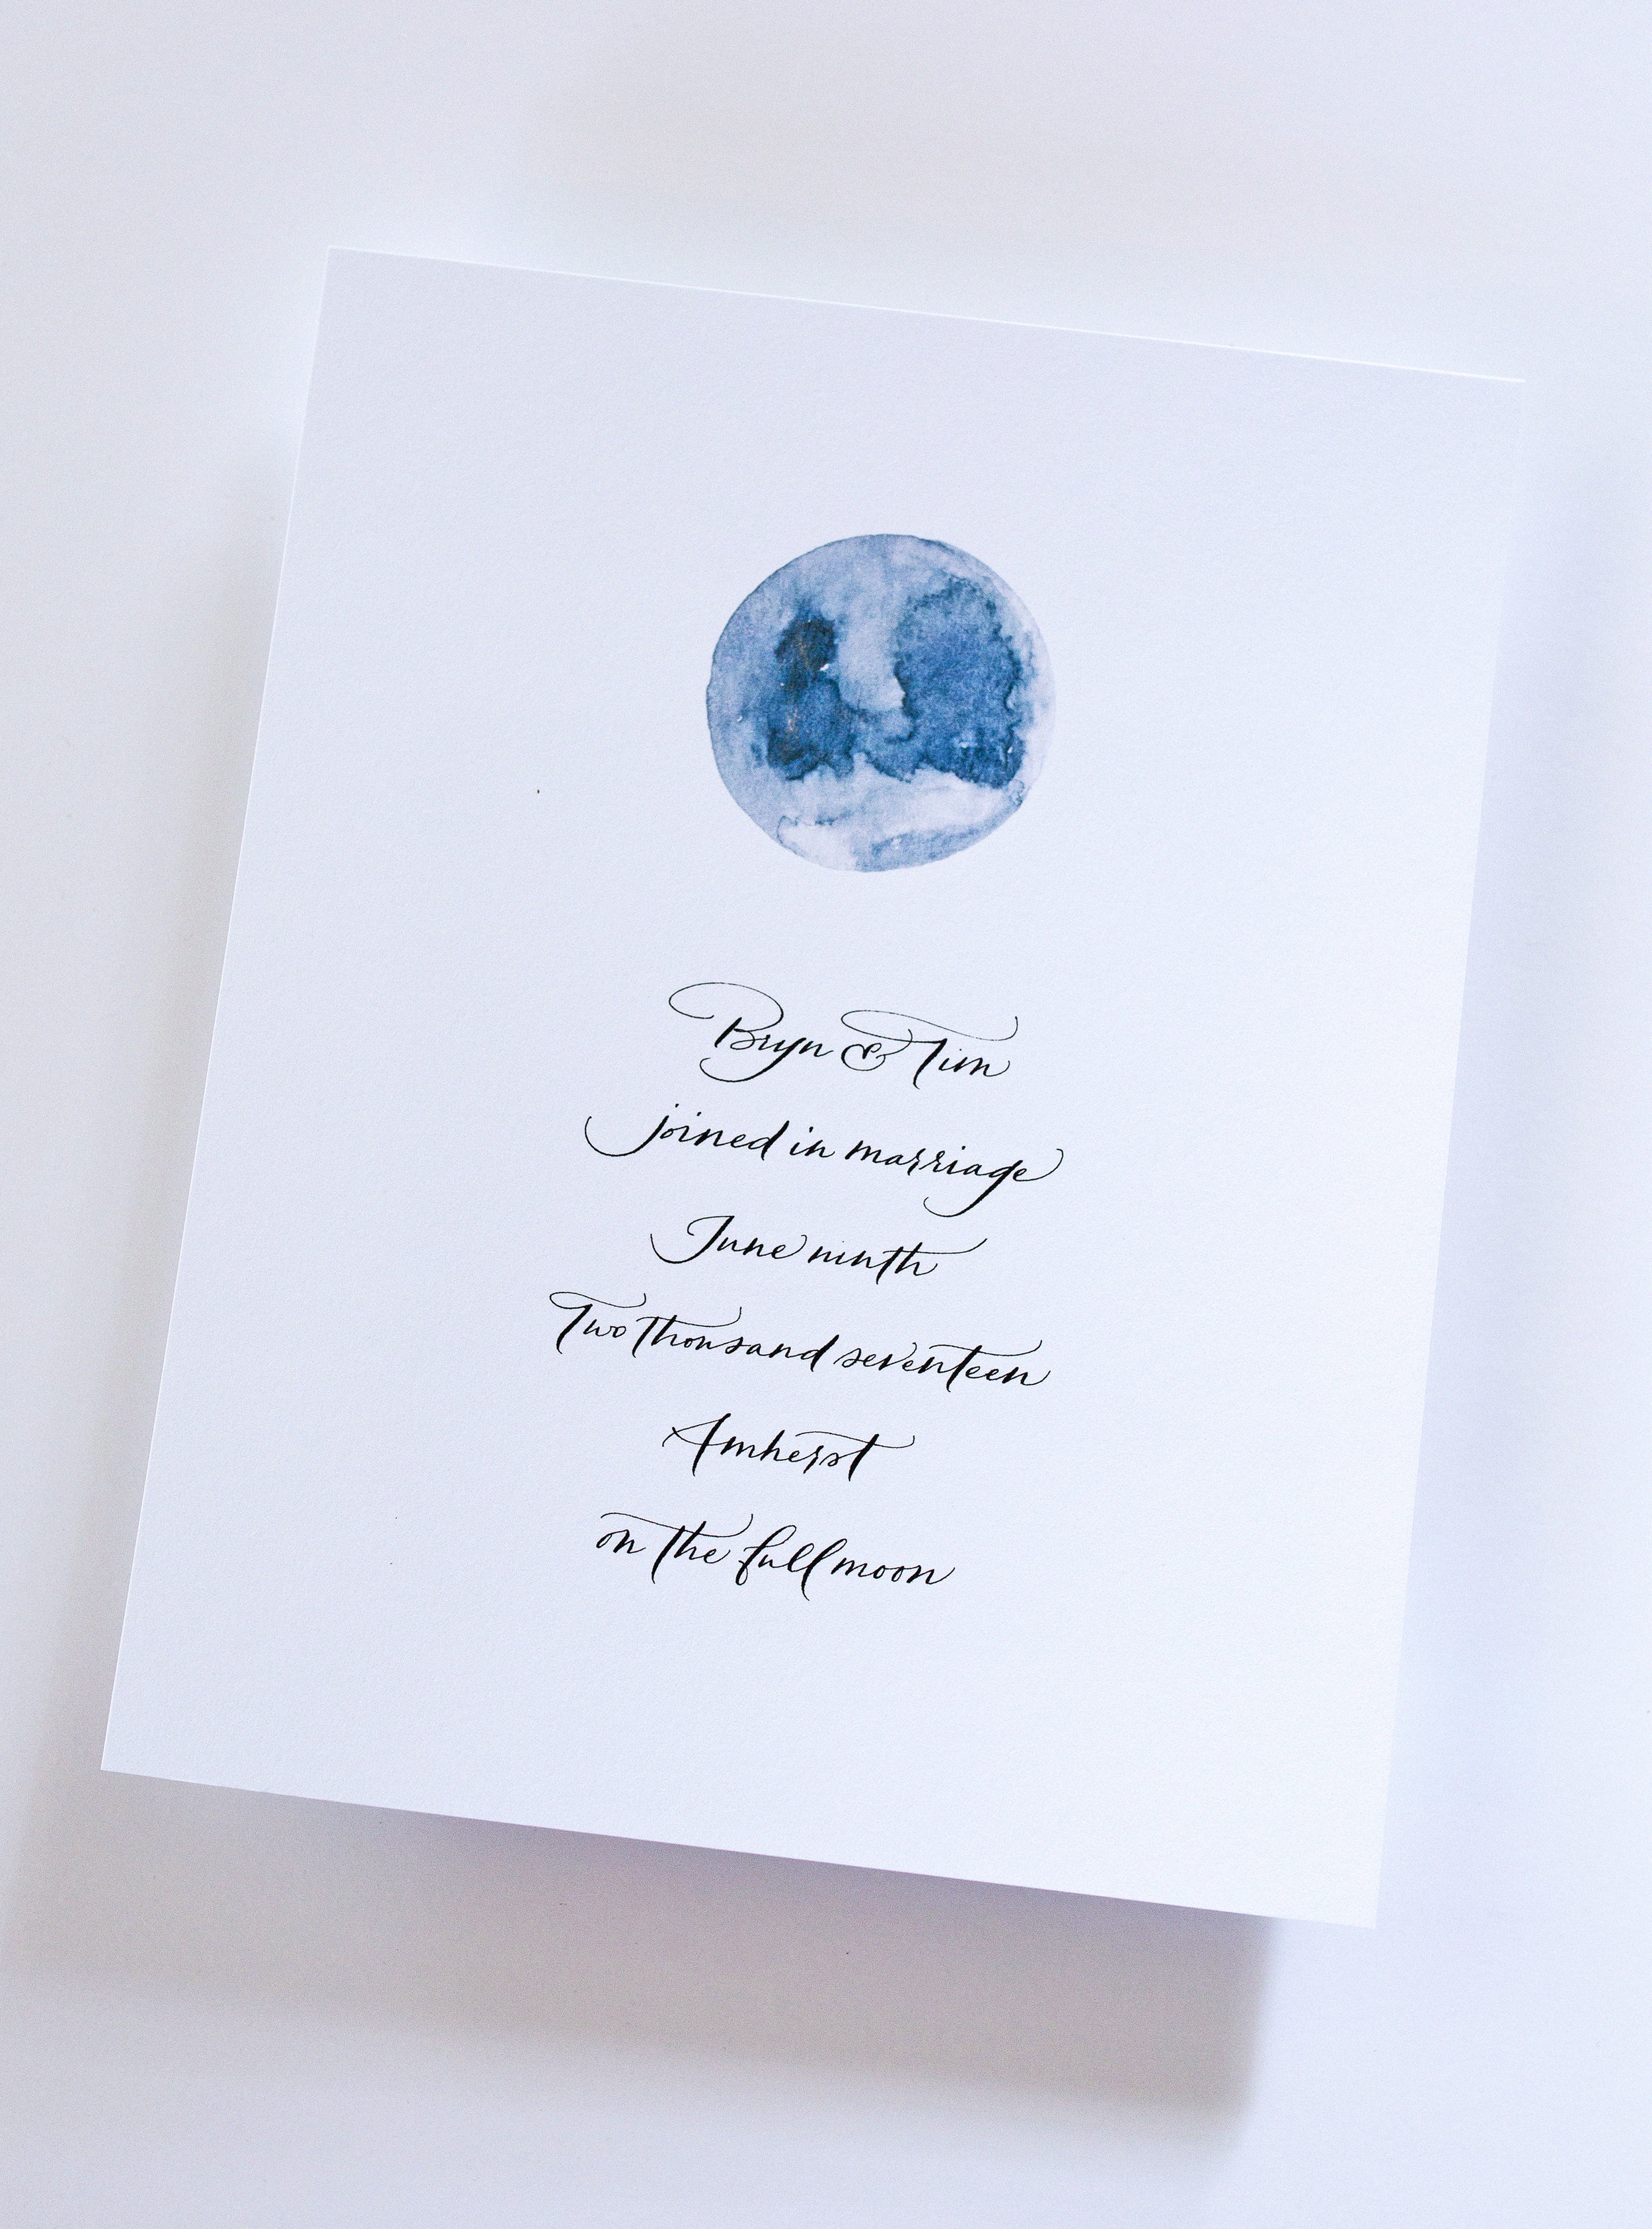 Bryn & Tim
joined in marriage
June ninth
Two thousand seventeen
Amherst
on the full moon